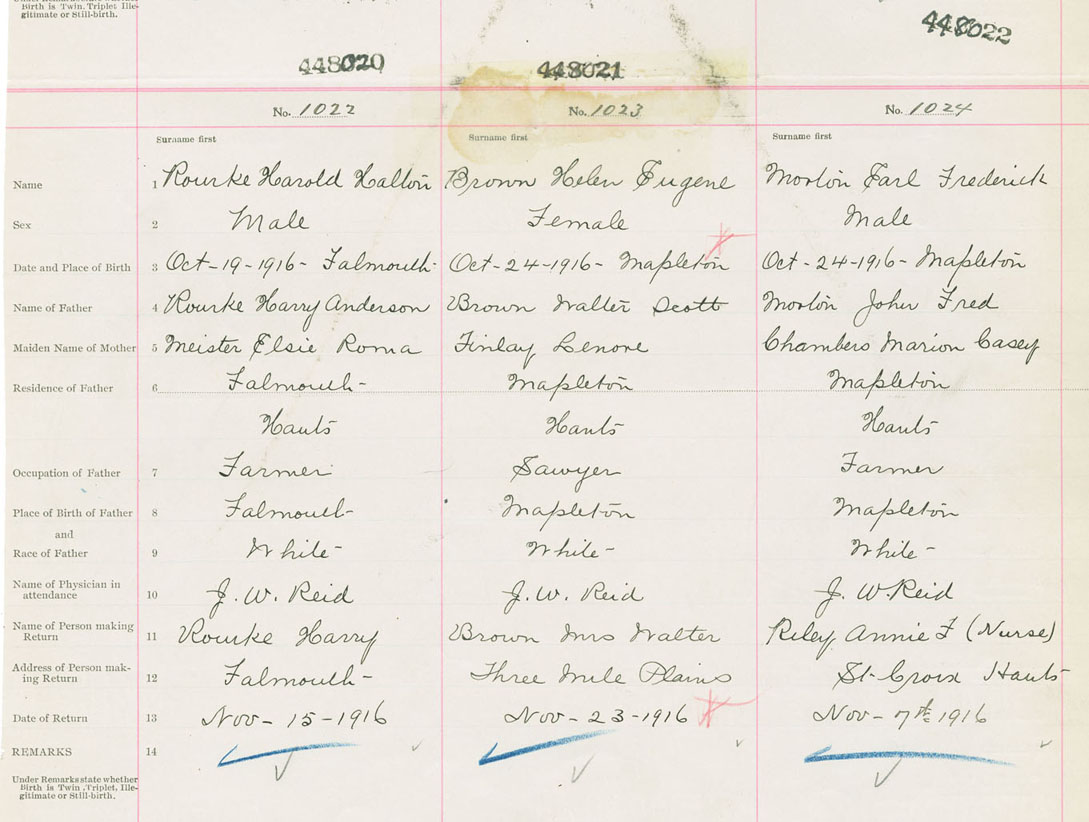 Under Remarks state whether
Birth is Twin, Triplet, Ille-
gitimate or Still-birth.
448020 448021 448022
No. 1022 No. 1023 No. 1024
Surname first Surname first Surname first
Name 1 Rourke Harold Halton Brown Helen Eugene Morton Earl Frederick
Sex 2 Male Female Male
Date and Place of Birth 3 Oct-19-1916- Falmouth- Oct-24-1916- Mapleton Oct-24-1916- Mapleton
Name of Father 4 Rourke Harry Anderson Brown Walter Scott Morton John Fred
Maiden Name of Mother 5 Meister Elsie Roma Finlay Lenore Chambers Marion Casey
Residence of Father 6 Falmouth- Mapleton Mapleton
Hants Hants Hants
Occupation of Father 7 Farmer Sawyer Farmer
Place of Birth of Father 8 Falmouth- Mapleton Mapleton
and
Race of Father 9 White- White- White-
Name of Physician in
attendance 10 J. W. Reid J. W. Reid J. W. Reid
Name of Person making
Return 11 Rourke Harry Brown Mrs Walter Riley Annie F (Nurse)
Address of Person mak-
ing Return 12 Falmouth- Three Mile Plains St-Croix Hants
Date of Return 13 Nov-15-1916 Nov-23-1916 Nov-7th 1916
REMARKS 14
Under Remarks state whether
Birth is Twin, Triplet, Ille-
gitimate or Still-birth.